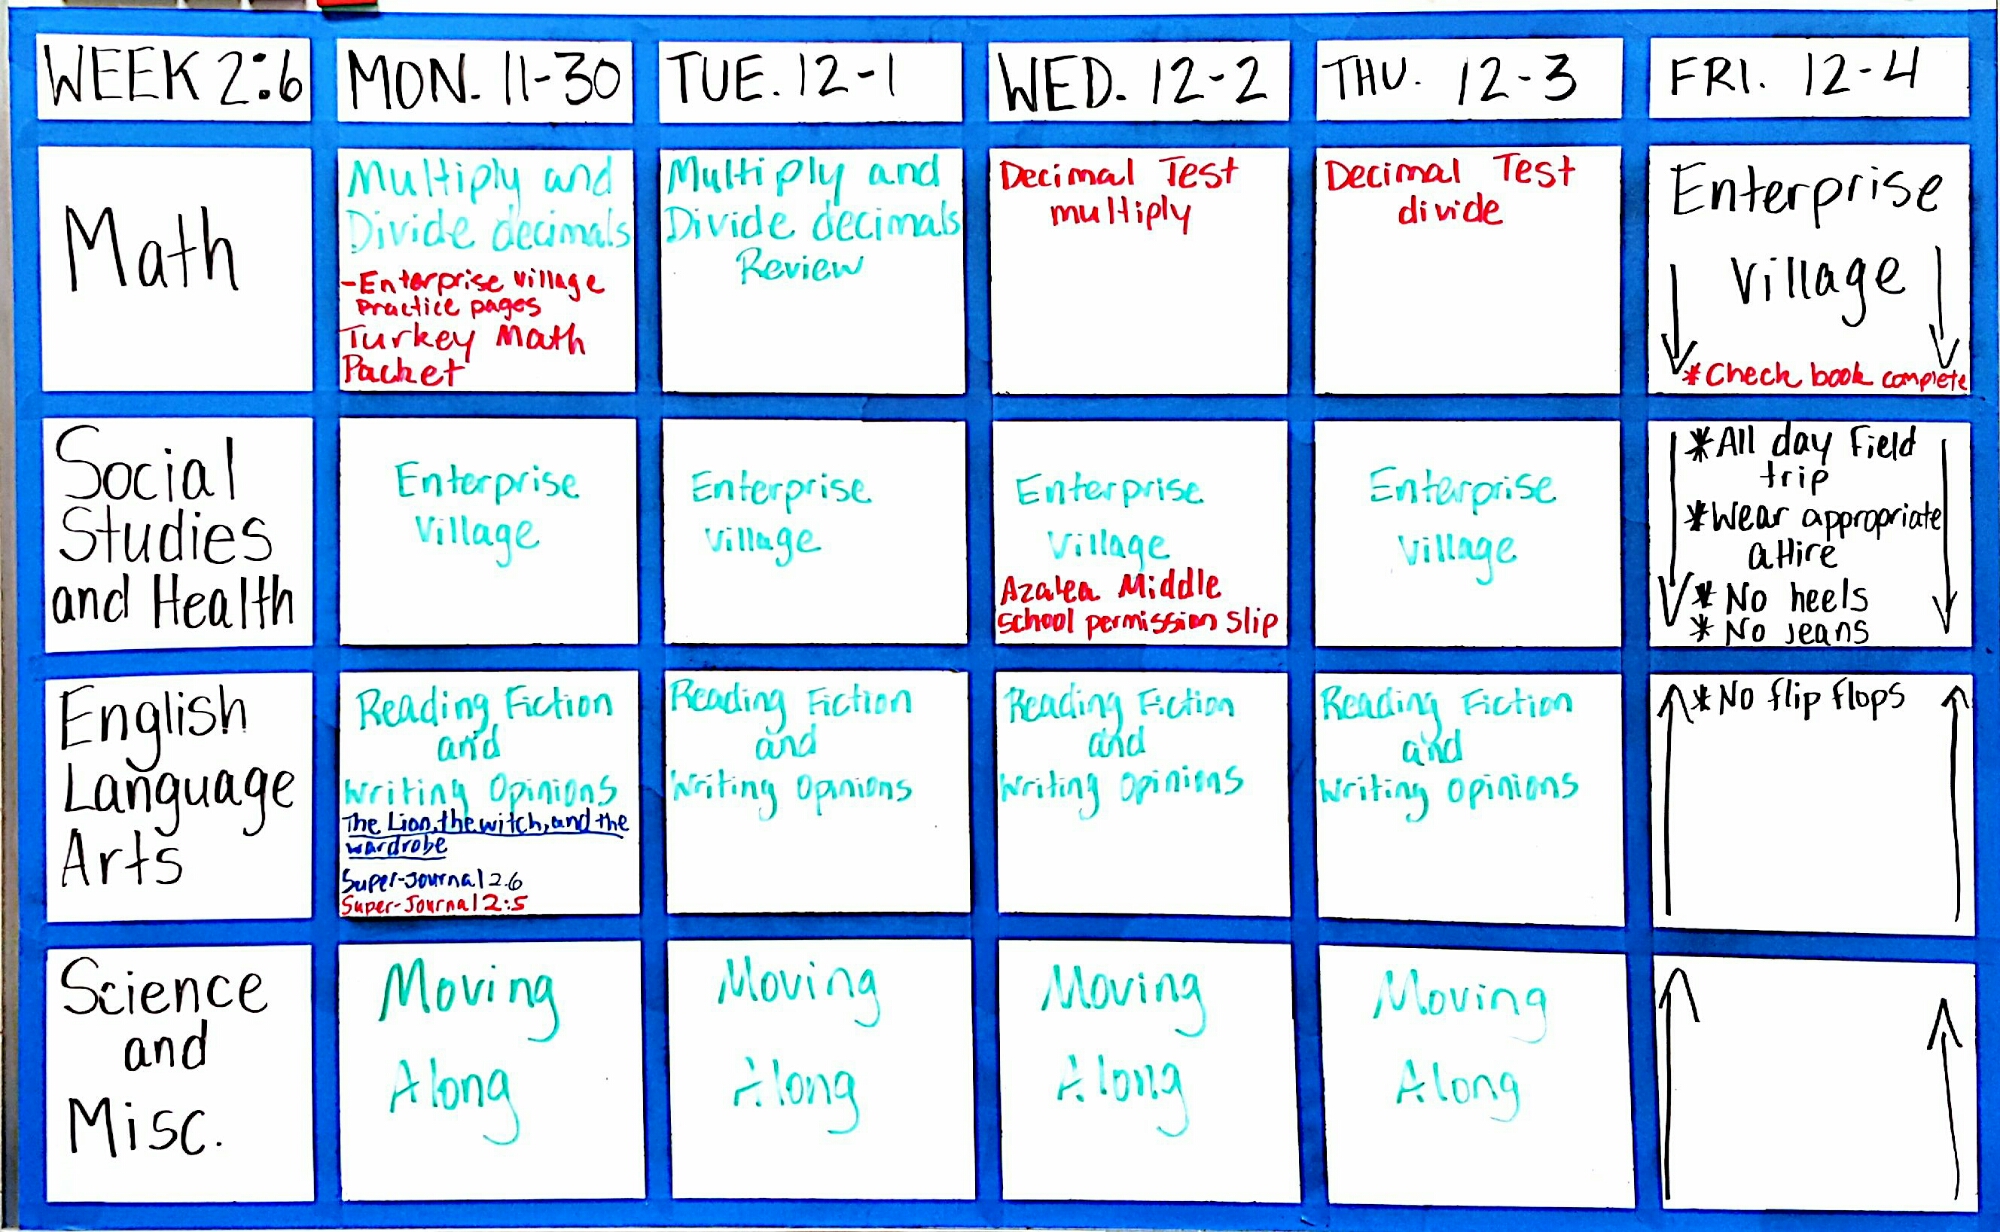 WEEK 2:6
MON. 11-30
TUE. 12-1
WED. 12-2
THU. 12-3
FRI. 12-4
Math
Multiply and
Divide decimals
-Enterprise Village
Practice pages
Turkey Math
Packet
Multiply and
Divide decimals
Review
Decimal Test
multiply
Decimal Test
divide
Enterprise
Village
*Check book complete
Social
Studies
and Health
Enterprise
Village
Enterprise
Village
Enterprise
Village
Azalea Middle
School permission slip
Enterprise
Village
*All day Field
trip
*Wear appropriate
attire
* No heels
* No jeans
English
Language
Arts
Reading Fiction
and
Writing Opinions
The Lion, the witch, and the
wardrobe
Super-Journal 2.6
Super-Journal 2:5
Reading Fiction
and
Writing Opinions
Reading Fiction
and
Writing Opinions
Reading Fiction
and
Writing Opinions
* No flip flops
Science
and
Misc.
Moving
Along
Moving
Along
Moving
Along
Moving
Along